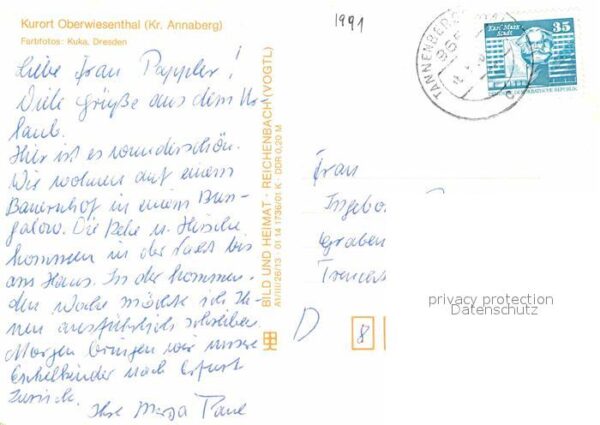 Kurort Oberwiesenthal (Kr. Annaberg)
Farbfotos: Kuka, Dresden
1991
Liebe Frau Pappler!
Viele Grüße aus dem Ur-
laub.
Hier ist es wunderschön.
Wir wohnen auf einem
Bauernhof in einem Bun-
galow. Die Rehe u. Hirsche
kommen in der Nacht bis
ans Haus. In der kommen-
den Woche möchte ich Ih-
nen ausführlich schreiben.
Morgen bringen wir unsere
Enkelkinder nach Erfurt
zurück.
Ihre Paul
BILD UND HEIMAT · REICHENBACH (VOGTL)
A1/III/26/13 · 01 14 1736/01 K · DDR 0,20 M
TANNENBERG
Karl-Marx-
Stadt
35
DEUTSCHE DEMOKRATISCHE REPUBLIK
Frau
Ingebo
Graben
D
8
privacy protection
Datenschutz